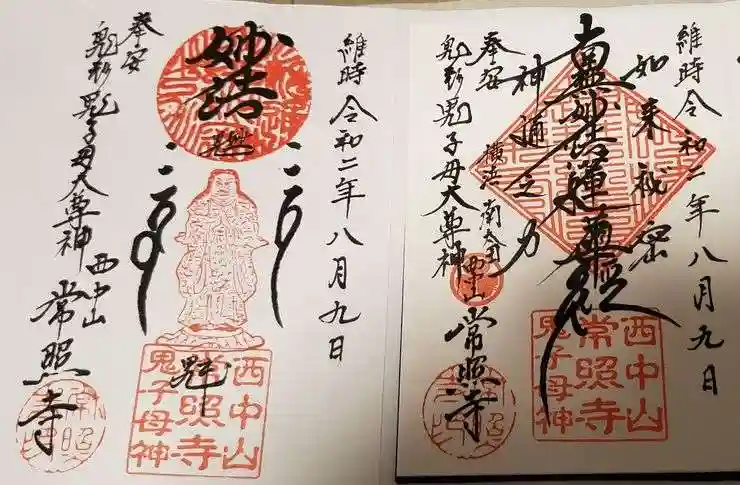 維時令和二年八月九日
如来秘密
南無妙法蓮華経
神通之力
奉安
鬼形鬼子母大尊神
横浜 南太田
常照寺
西中山
常照寺
鬼子母神
維時 令和二年八月九日
妙法
奉安
鬼形鬼子母大尊神
西中山
常照寺
西中山
常照寺
鬼子母神
常照